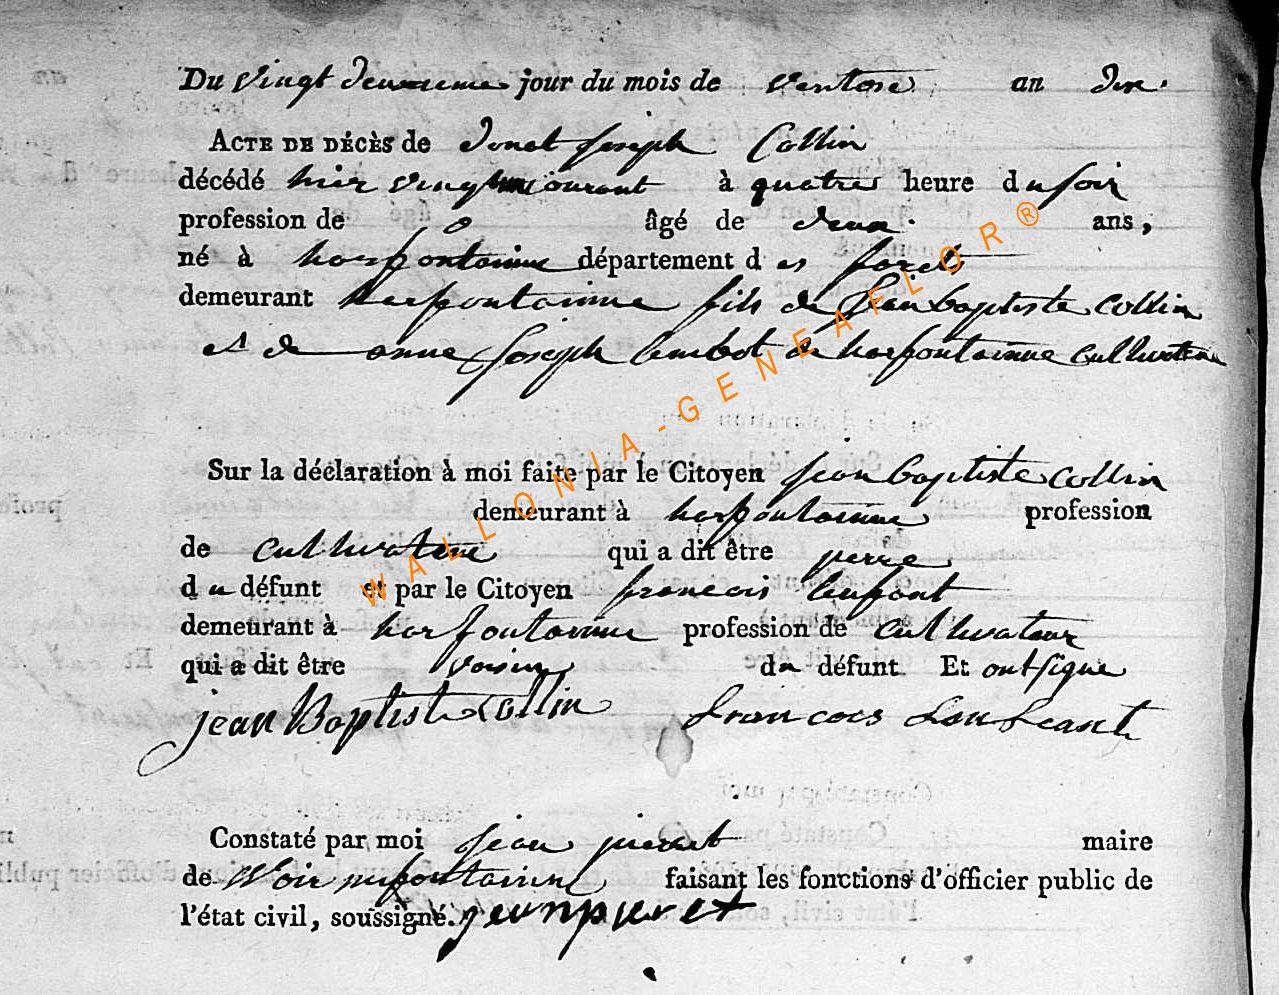 Du vingt deuxieme jour du mois de ventose an dix.
ACTE DE DÉCÈS de donet joseph Collin
décédé hier vingt courant à quatre heure du soir
profession de âgé de deux ans,
né à harfontainne département des foret
demeurant harfontainne fils de Jean baptiste collin
et de anne joseph de harfontainne cultivateur
Sur la déclaration à moi faite par le Citoyen jean baptiste collin
demeurant à harfontainne profession
de cultivateur qui a dit être perre
du défunt et par le Citoyen francois
demeurant à harfontainne profession de cultivateur
qui a dit être voisin du défunt Et ont signe
jean Baptiste collin francois
Constaté par moi jean pierret maire
de faisant les fonctions d'officier public de
l'état civil, soussigné. jean pierret
WALLONIA-GENEAFLOR®